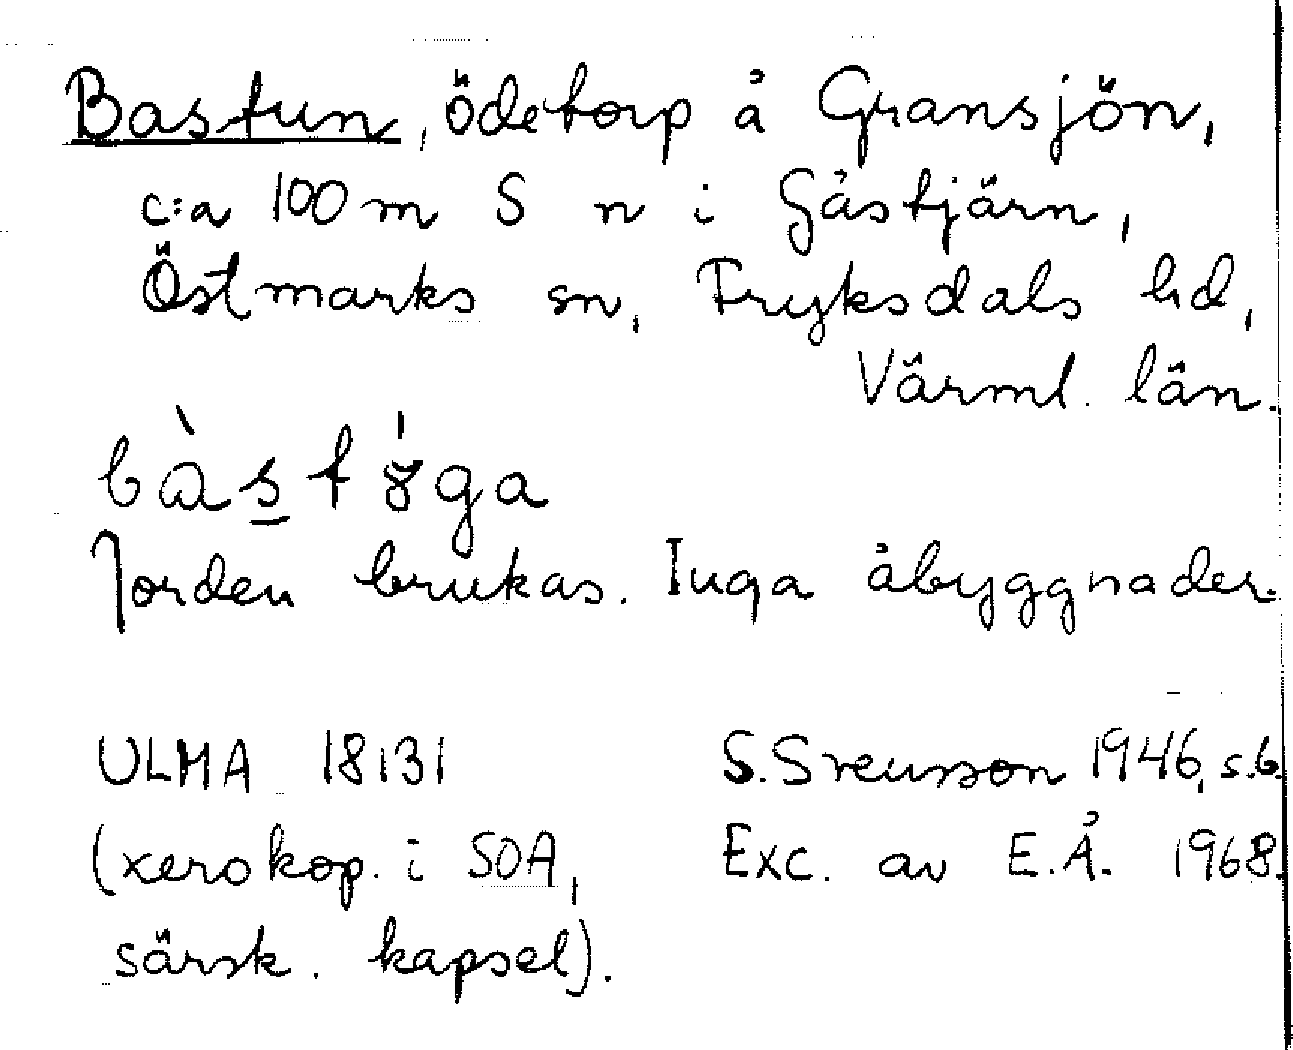 Bastun, ödetorp å Gransjön,
c:a 100 m S n i Gåstjärn,
Östmarks sn, Fryksdals hd,
Värml. län.
Jorden brukas. Inga åbyggnader.
ULMA 18131 S. Svensson 1946, s. 6.
(xerokop. i SOA, Exc. av E.Å. 1968.
särsk. kapsel).